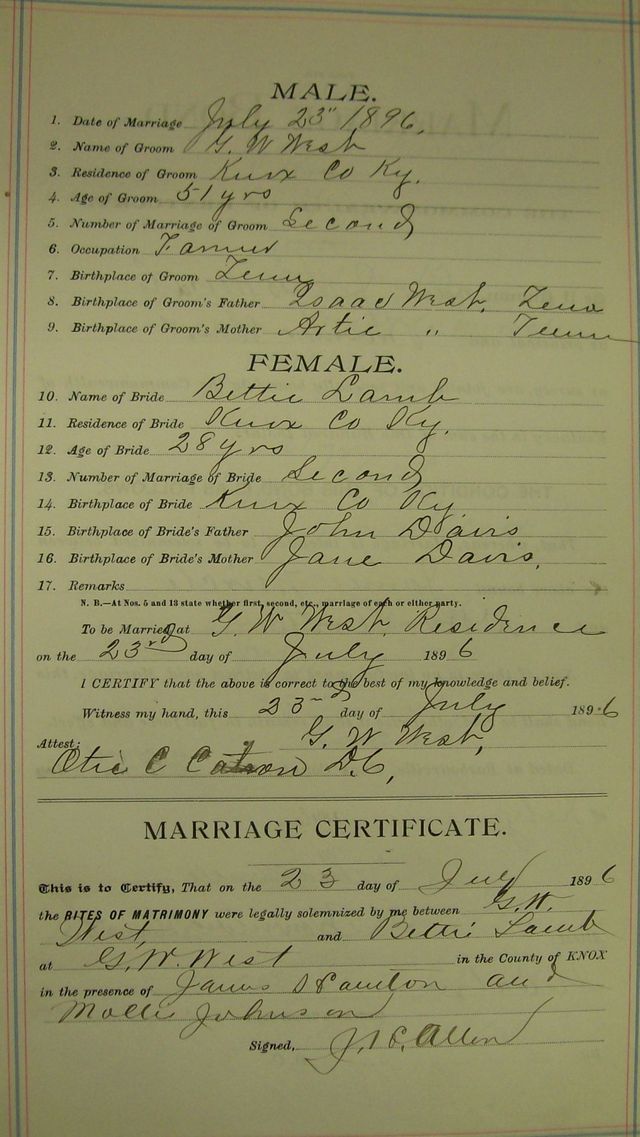 MALE.
1. Date of Marriage July 23" 1896.
2. Name of Groom G. W West
3. Residence of Groom Knox Co Ky.
4. Age of Groom 51 yrs
5. Number of Marriage of Groom Second
6. Occupation Farmer
7. Birthplace of Groom Tenn
8. Birthplace of Groom's Father Isaac West, Tenn
9. Birthplace of Groom's Mother Artie " Tenn
FEMALE.
10. Name of Bride Bettie Lamb
11. Residence of Bride Knox Co Ky.
12. Age of Bride 28 yrs
13. Number of Marriage of Bride Second
14. Birthplace of Bride Knox Co Ky
15. Birthplace of Bride's Father John Davis
16. Birthplace of Bride's Mother Jane Davis,
17. Remarks
N. B.—At Nos. 5 and 13 state whether first, second, etc., marriage of each or either party.
To be Married at G. W West, Residence
on the 23rd day of July 1896
I CERTIFY that the above is correct to the best of my knowledge and belief.
Witness my hand, this 23 day of July 1896
G. W West,
Attest:
C Catron D.C,
MARRIAGE CERTIFICATE.
This is to Certify, That on the 23 day of July 1896
the RITES OF MATRIMONY were legally solemnized by me between G.W.
West, and Bettie Lamb
at G. W. West in the County of KNOX
in the presence of James and
Mollie Johnson
Signed, Allen